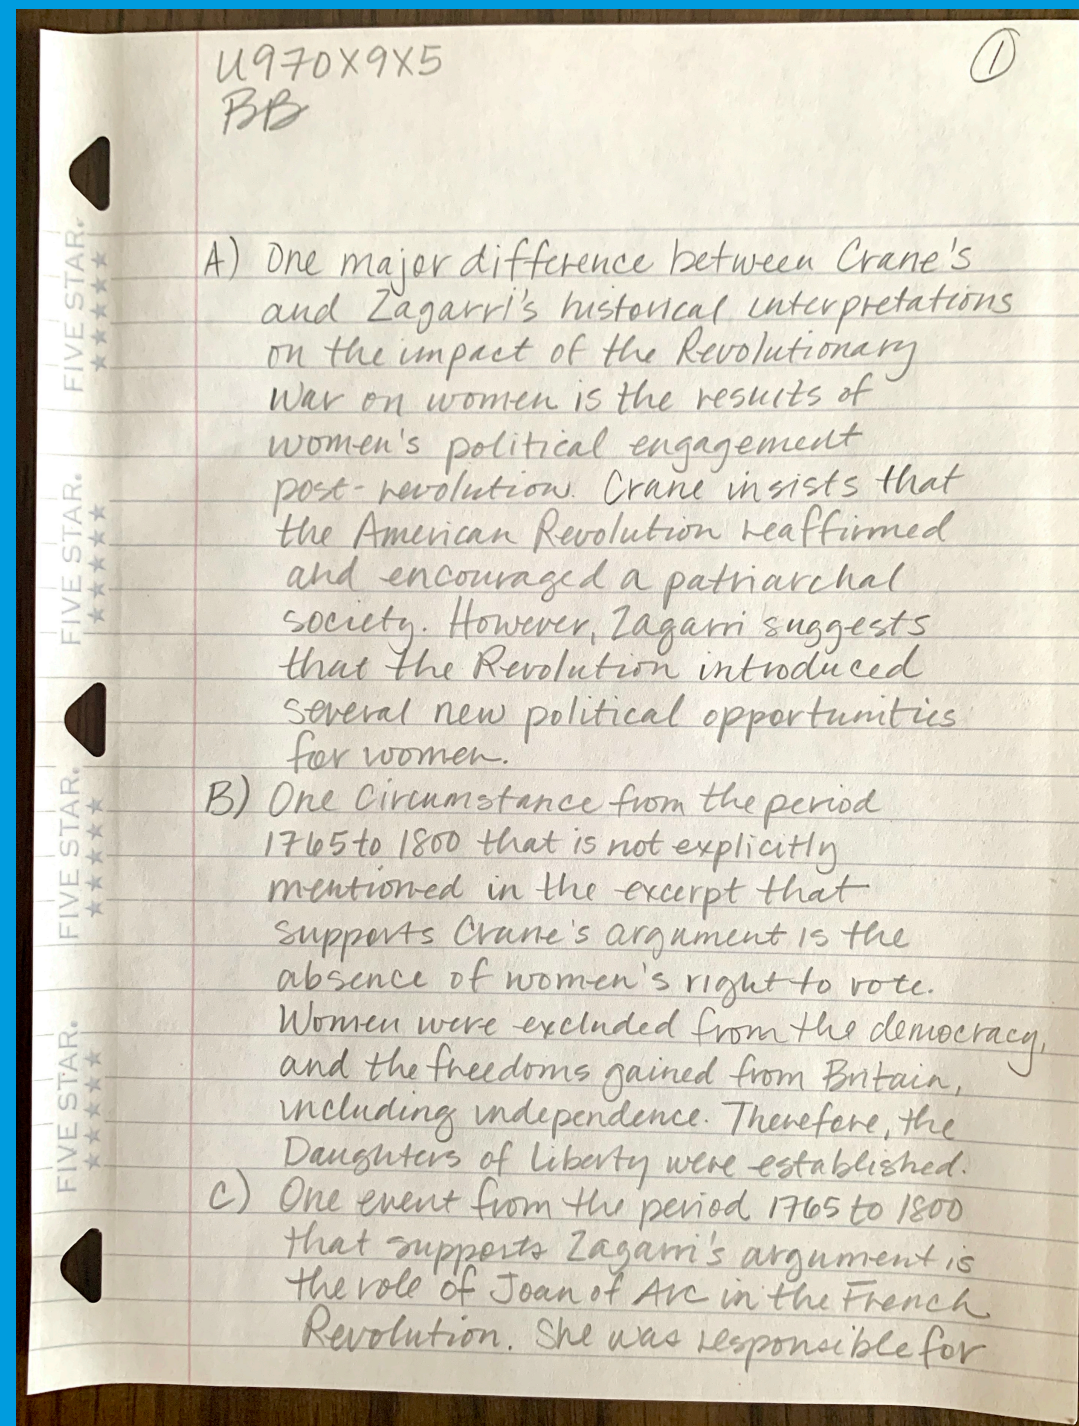 U970X9X5
BB
1
A) One major difference between Crane's
and Zagarri's historical interpretations
on the impact of the Revolutionary
War on women is the results of
women's political engagement
post-revolution. Crane insists that
the American Revolution reaffirmed
and encouraged a patriarchal
society. However, Zagarri suggests
that the Revolution introduced
several new political opportunities
for women.
B) One circumstance from the period
1765 to 1800 that is not explicitly
mentioned in the excerpt that
supports Crane's argument is the
absence of women's right to vote.
Women were excluded from the democracy,
and the freedoms gained from Britain,
including independence. Therefore, the
Daughters of Liberty were established.
C) One event from the period 1765 to 1800
that supports Zagarri's argument is
the role of Joan of Arc in the French
Revolution. She was responsible for
FIVE STAR.
FIVE STAR.
FIVE STAR.
FIVE STAR.